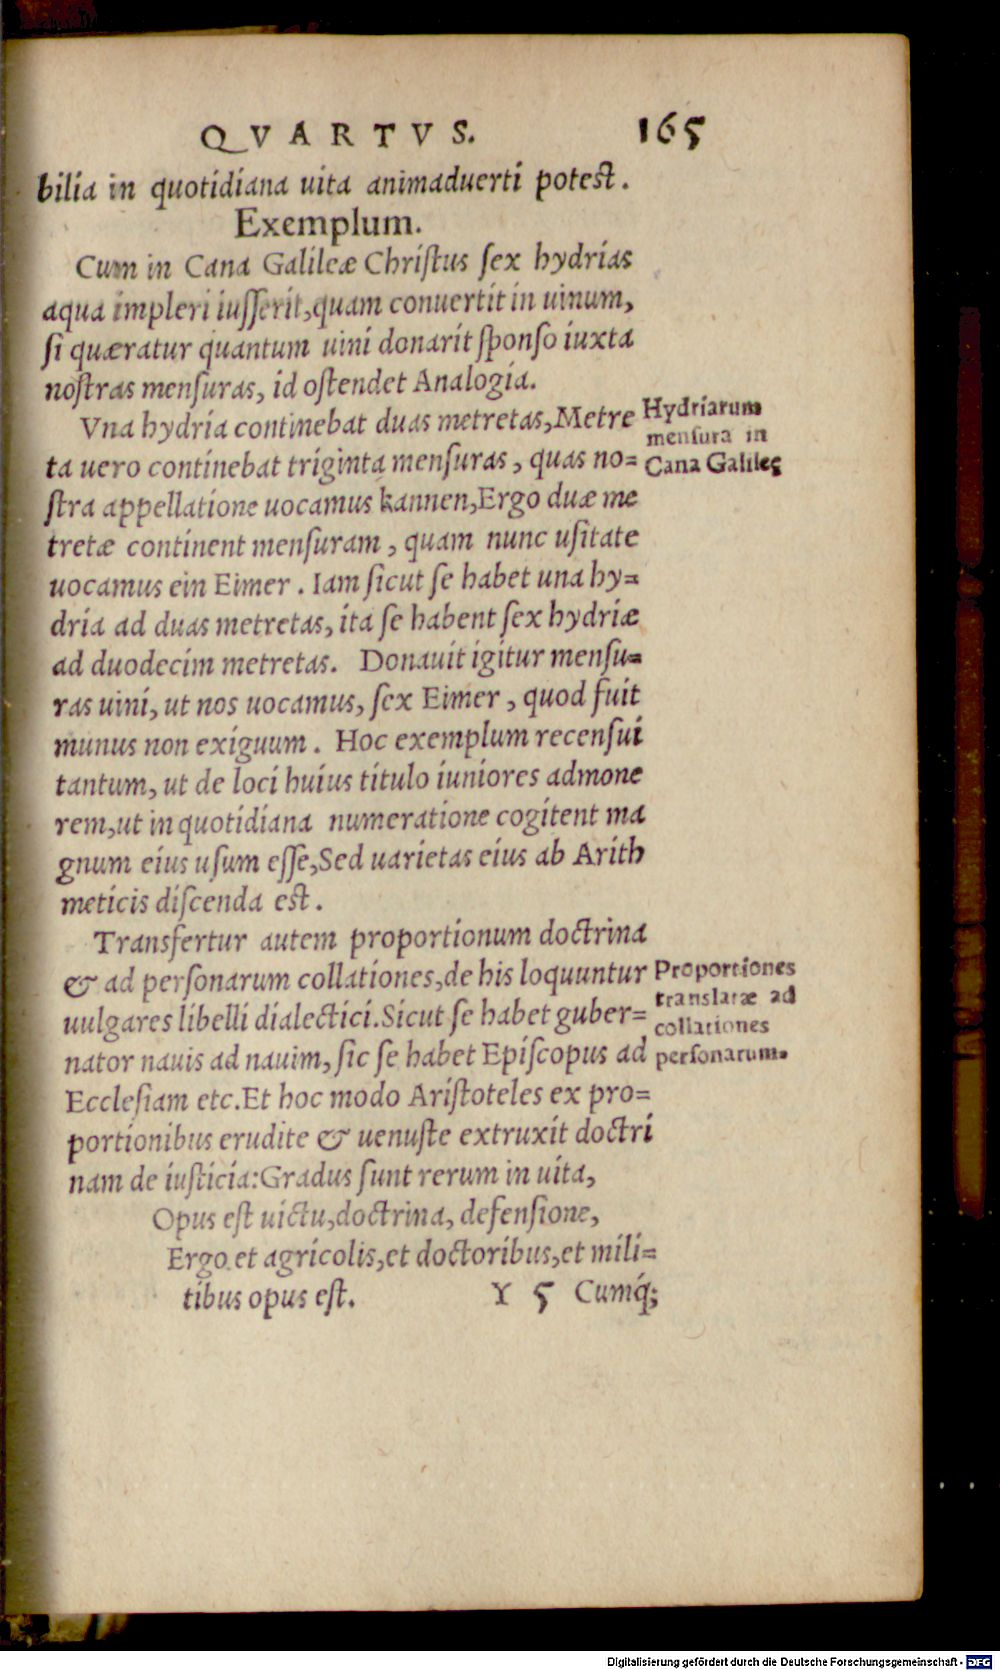 QVARTVS. 165
bilia in quotidiana uita animaduerti potest.
Exemplum.
Cum in Cana Galileæ Christus sex hydrias
aqua impleri iusserit, quam conuertit in uinum,
si quæratur quantum uini donarit sponso iuxta
nostras mensuras, id ostendet Analogia.
Vna hydria continebat duas metretas, Metre
ta uero continebat triginta mensuras, quas no=
stra appellatione uocamus kannen, Ergo duæ me
tretæ continent mensuram, quam nunc usitate
uocamus ein Eimer. Iam sicut se habet una hy=
dria ad duas metretas, ita se habent sex hydriæ
ad duodecim metretas. Donauit igitur mensu=
ras uini, ut nos uocamus, sex Eimer, quod fuit
munus non exiguum. Hoc exemplum recensui
tantum, ut de loci huius titulo iuniores admone
rem, ut in quotidiana numeratione cogitent ma
gnum eius usum esse, Sed uarietas eius ab Arith
meticis discenda est.
Hydriarum
mensura in
Cana Galileę
Transfertur autem proportionum doctrina
& ad personarum collationes, de his loquuntur
uulgares libelli dialectici. Sicut se habet guber=
nator nauis ad nauim, sic se habet Episcopus ad
Ecclesiam etc. Et hoc modo Aristoteles ex pro=
portionibus erudite & uenuste extruxit doctri
nam de iusticia: Gradus sunt rerum in uita,
Opus est uictu, doctrina, defensione,
Ergo et agricolis, et doctoribus, et mili=
tibus opus est.
Proportiones
translatæ ad
collationes
personarum.
Y 5 Cumq́;
Digitalisierung gefördert durch die Deutsche Forschungsgemeinschaft - DFG